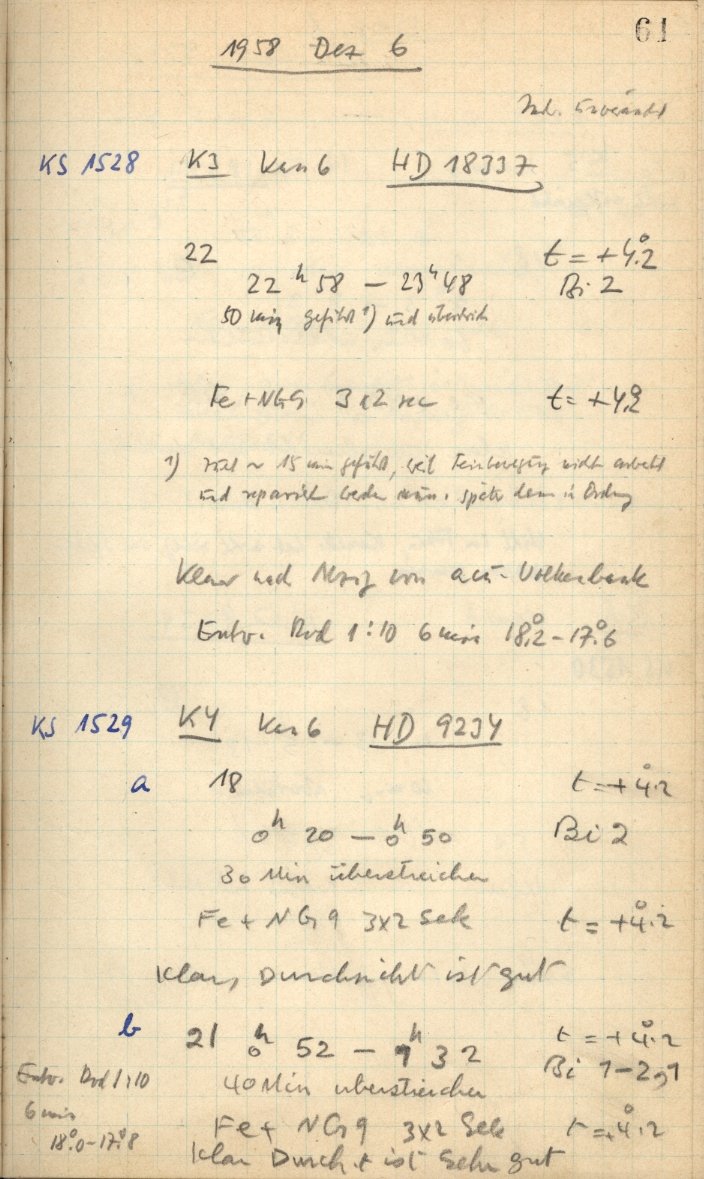 61
1958 Dez 6
KS 1528 K3 Kas 6 HD 18337
22 t = +4°.2
22ʰ 58 – 23ʰ 48 Bi 2
50 min geführt ¹) und überstrich
Fe + NG9 3x2 sec t = +4°.2
1) ~ 15 min geführt, weil Feinbewegung nicht arbeitet
und repariert werden . später dann in Ordnung
Klar nach Abzug von
Entw. Rod 1:10 6 min 18°.2 – 17°.6
KS 1529 K4 Kas 6 HD 9234
a 18 t = +4°.2
0ʰ 20 – 0ʰ 50 Bi 2
30 Min überstreichen
Fe + NG9 3x2 Sek t = +4°.2
Klar, Durchsicht ist gut
b 21 0ʰ 52 – 1ʰ 32 t = +4°.2
Bi 1–2,1
40 Min überstreichen
Entw. Rod 1:10
6 min
18°.0–17°.8
Fe + NG9 3x2 Sek t = +4°.2
Klar Durch.t ist sehr gut